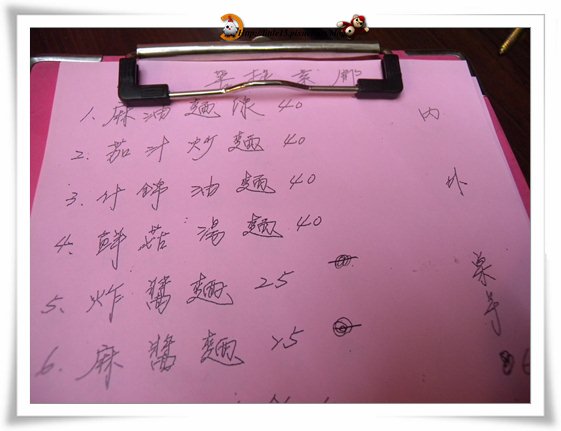 1. 麻油麵線 40
2. 茄汁炒麵 40
3. 什錦油麵 40
4. 鮮菇湯麵 40
5. 炸醬麵 25
6. 麻醬麵 25
內
外
桌号